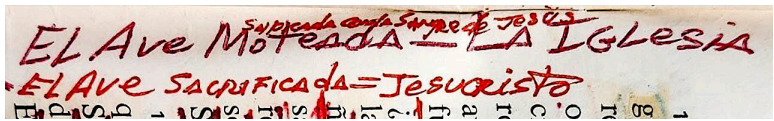 salpicada con la Sangre de Jesús
El Ave Moteada = La Iglesia
El Ave Sacrificada = Jesucristo